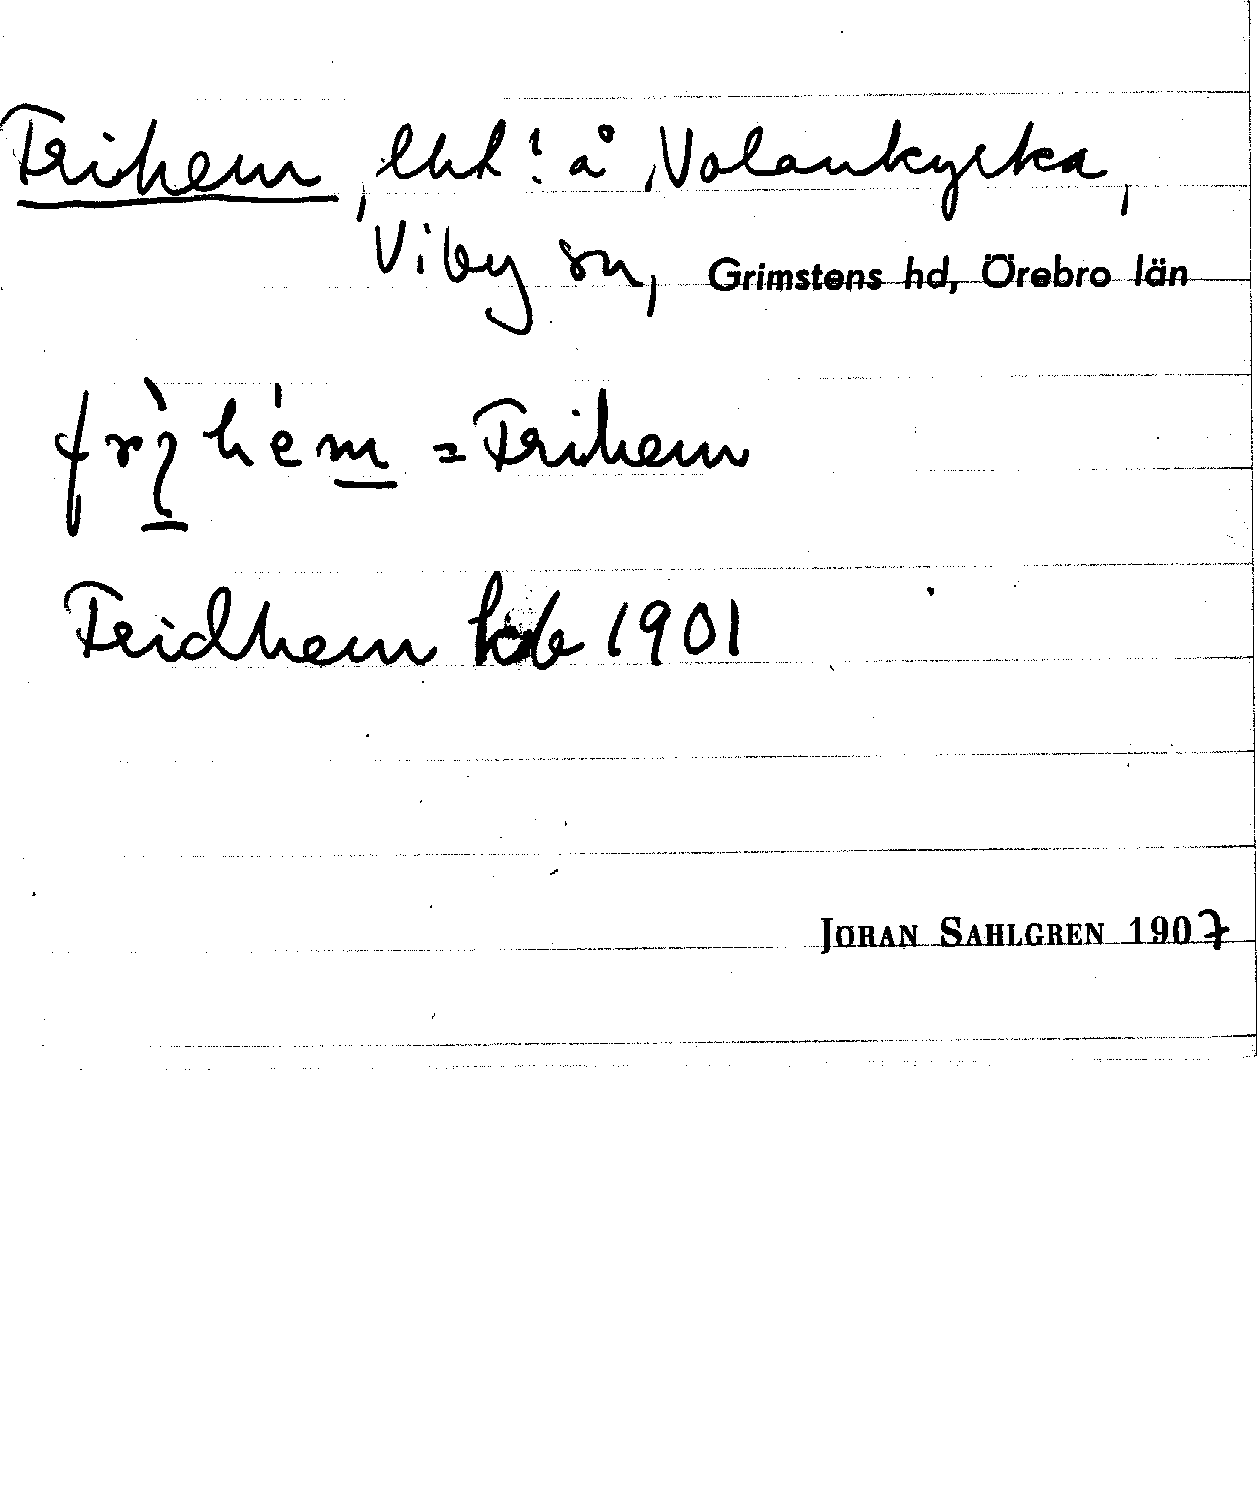 Frihem, lht! å Volankyrka,
Viby sn, Grimstens hd, Örebro län
= Frihem
Fridhem 1901
JORAN SAHLGREN 1907